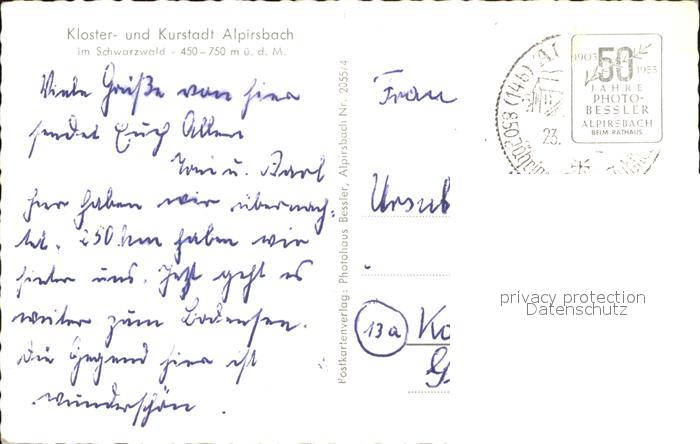 Kloster- und Kurstadt Alpirsbach
im Schwarzwald - 450-750 m ü. d. M.
Viele Grüße von hier
sendet Euch Allen
Toni u. Karl
Hier haben wir übernach-
tet. 250 km haben wir
hinter uns. Jetzt geht es
weiter zum Bodensee.
Die Gegend hier ist
wunderschön.
Postkartenverlag: Photohaus Bessler, Alpirsbach Nr. 2055/4
Frau
Ursul
13a
1903 50 1953
JAHRE
PHOTO-
BESSLER
ALPIRSBACH
BEIM RATHAUS
(14b)
23.
850jährig
privacy protection
Datenschutz